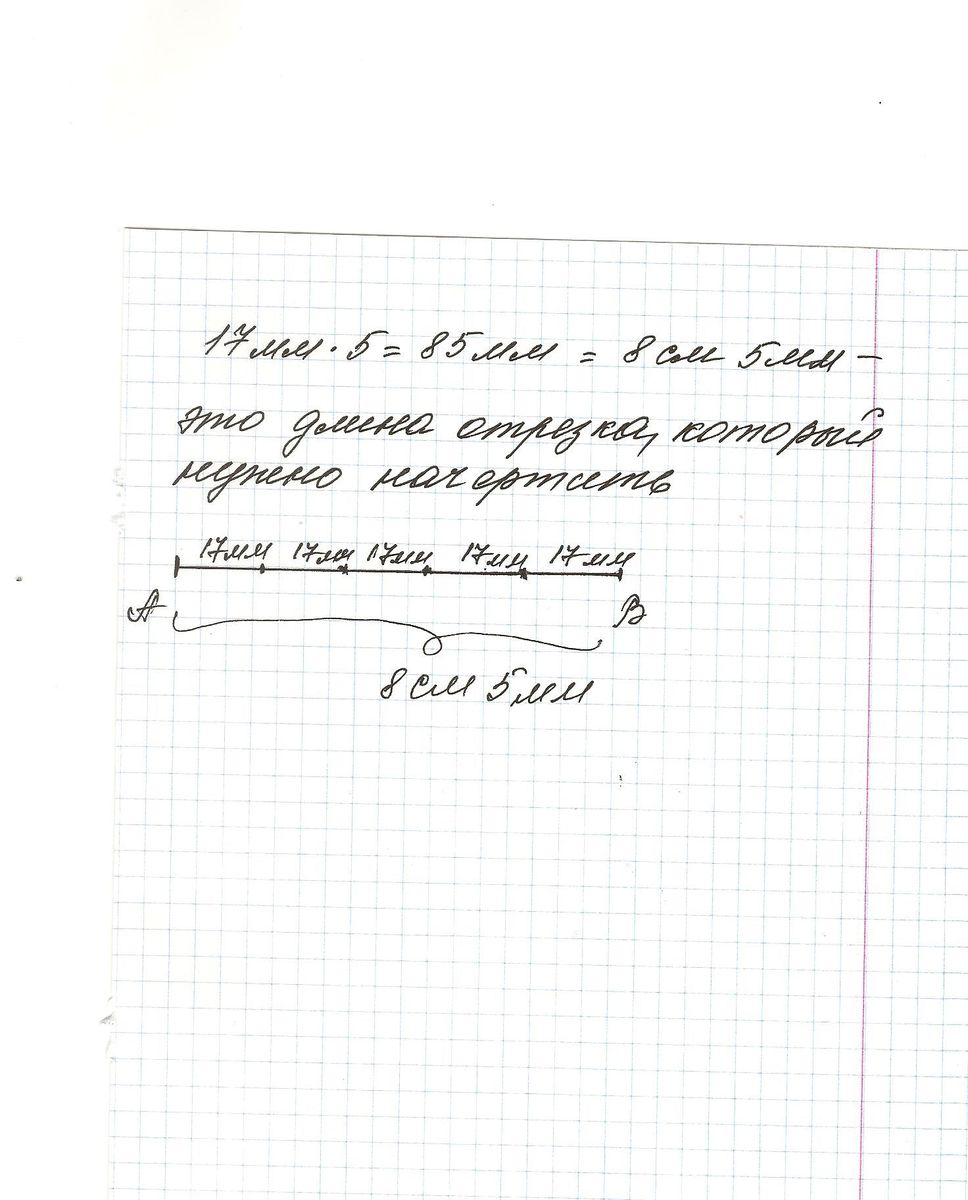 17мм · 5 = 85мм = 8см 5мм –
это длина отрезка, который
нужно начертить
17мм 17мм 17мм 17мм 17мм
А В
8см 5мм